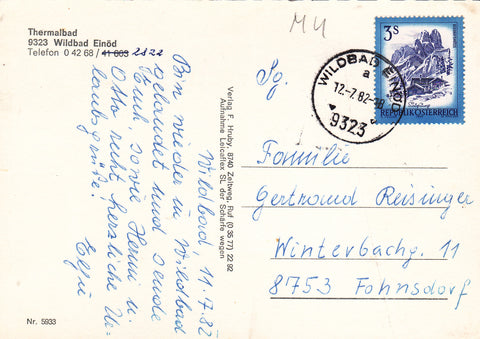 Thermalbad
9323 Wildbad Einöd
Telefon 0 42 68 / 41 603 2822
Wildbad, 11.7.82
Bin wieder in Wildbad
gelandet und sende
Euch, sowie Henni u.
Otto recht herzliche Ur-
laubsgrüße!
Nr. 5933
Verlag F. Hruby, 8740 Zeltweg, Ruf (0 35 77) 22 92
Aufnahme Leicaflex SL der Schärfe wegen
M4
WILDBAD EINÖD
a
12.-7.82-18
9323
3S
REPUBLIK ÖSTERREICH
Pg.
Familie
Gertraud Reisinger
Winterbachg. 11
8753 Fohnsdorf